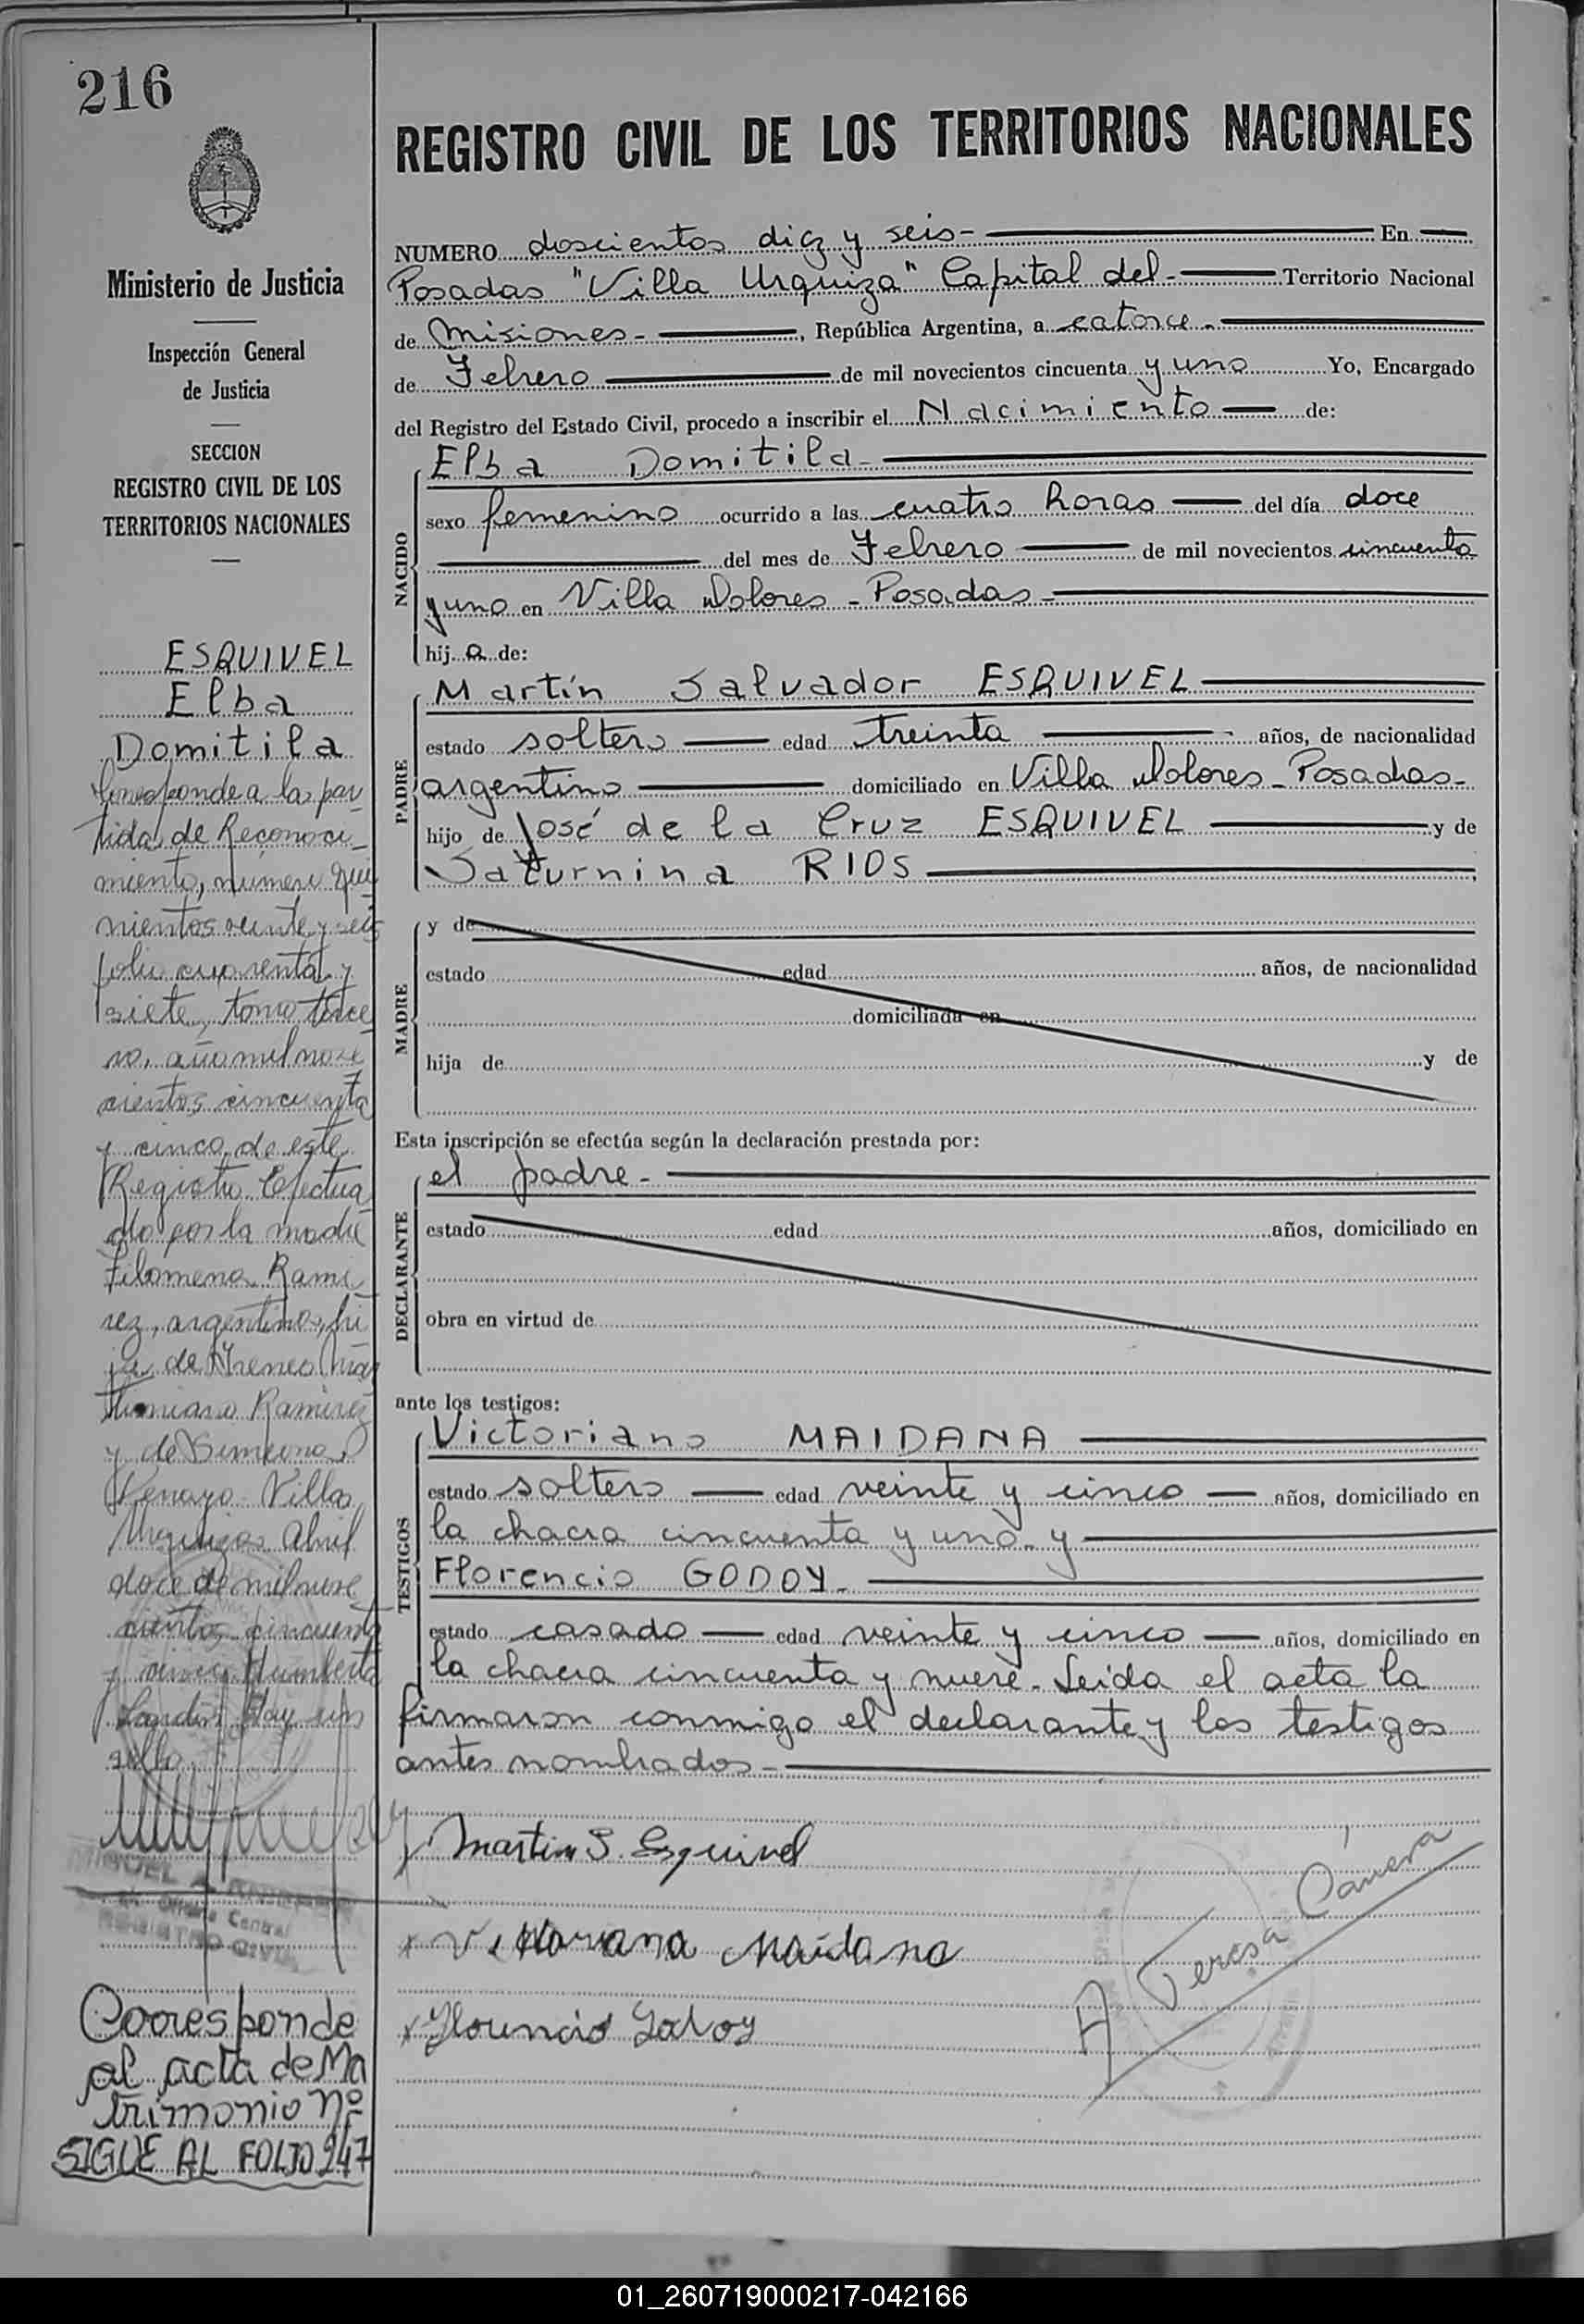 216
Ministerio de Justicia
Inspección General
de Justicia
SECCION
REGISTRO CIVIL DE LOS
TERRITORIOS NACIONALES
ESQUIVEL
Elba
Domitila
Corresponde a la par
tida de Reconoci-
miento, número qui
nientos veinte y seis
folio cuarenta y
siete, tomo terce
ro, año mil nove
cientos cincuenta
y cinco de este
Registro Efectua
do por la madre
Filomena Rami
rez, argentina, hi
ja de Ireneo
Ramirez
y de
Villa
Urquiza Abril
doce de mil nove
cientos cincuenta
y cinco Humberto
Hay un
sello
Central
REGISTRO CIVIL
Corresponde
al acta de Ma
trimonio Nº
SIGUE AL FOLIO 247
REGISTRO CIVIL DE LOS TERRITORIOS NACIONALES
NUMERO doscientos diez y seis- En
Posadas "Villa Urquiza" Capital del- Territorio Nacional
de Misiones- , República Argentina, a catorce-
de Febrero de mil novecientos cincuenta y uno Yo, Encargado
del Registro del Estado Civil, procedo a inscribir el Nacimiento de:
NACIDO
Elba Domitila-
sexo femenino ocurrido a las cuatro horas del día doce
del mes de Febrero de mil novecientos cincuenta
y uno en Villa Dolores - Posadas-
hij a de:
PADRE
Martín Salvador ESQUIVEL
estado soltero edad treinta años, de nacionalidad
argentino domiciliado en Villa Dolores - Posadas-
hijo de José de la Cruz ESQUIVEL y de
Saturnina RIOS
MADRE
y de
estado edad años, de nacionalidad
domiciliada en
hija de y de
Esta inscripción se efectúa según la declaración prestada por:
DECLARANTE
el padre-
estado edad años, domiciliado en
obra en virtud de
ante los testigos:
TESTIGOS
Victoriano MAIDANA
estado soltero edad veinte y cinco años, domiciliado en
la chacra cincuenta y uno- y
Florencio GODOY-
estado casado edad veinte y cinco años, domiciliado en
la chacra cincuenta y nueve- Leida el acta la
firmaron conmigo el declarante y los testigos
antes nombrados-
Martin S. Esquivel
Victoriana Maidana
Florencio Godoy
A Teresa Cámera
01_260719000217-042166